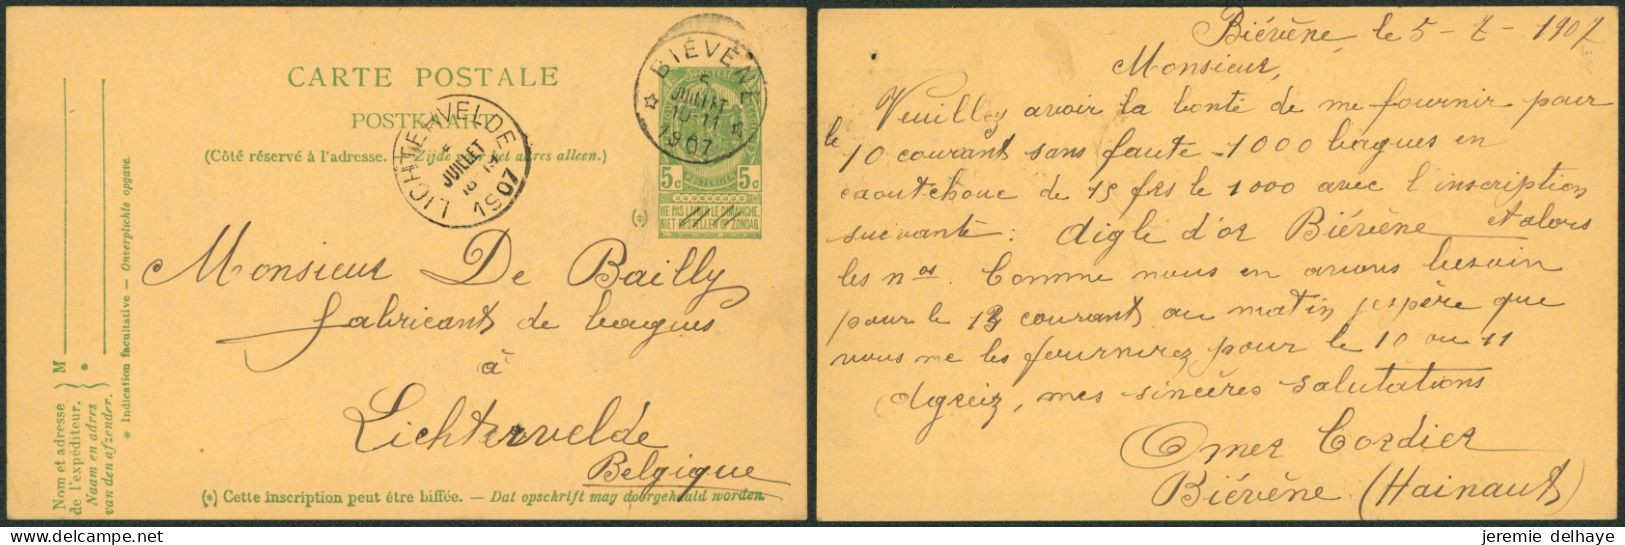 CARTE POSTALE
POSTKAART
(Côté réservé à l'adresse. — Zijde voor het adres alleen.)
BIÉVÈNE
5
JUILLET
10-11
1907
LICHTERVELDE
JUILLET
1907
5c 5c
NE PAS LIVRER LE DIMANCHE.
NIET BESTELLEN OP ZONDAG.
(*)
Monsieur De Bailly
fabricant de bagues
à
Lichtervelde
Belgique
(*) Cette inscription peut être biffée. — Dat opschrift mag doorgehaald worden.
Nom et adresse
de l'expéditeur.
Naam en adres
van den afzender.
M
*
* Indication facultative — Onverplichte opgave.
Biévène, le 5 - 7 - 1907
Monsieur,
Veuillez avoir la bonté de me fournir pour
le 10 courant sans faute - 1000 bagues en
caoutchouc de 15 frs le 1000 avec l'inscription
suivante : Aigle d'or Biévène et alors
les nos. Comme nous en avons besoin
pour le courant au matin j'espère que
vous me les fournirez pour le 10 ou 11
Agréez, mes sincères salutations
Omer Cordier
Biévène (Hainaut)
jeremie delhaye